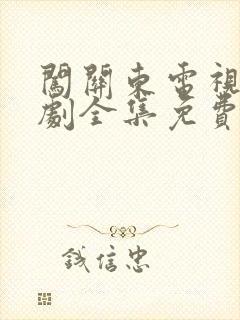 闖關東電視
劇全集免費
鋮信忠